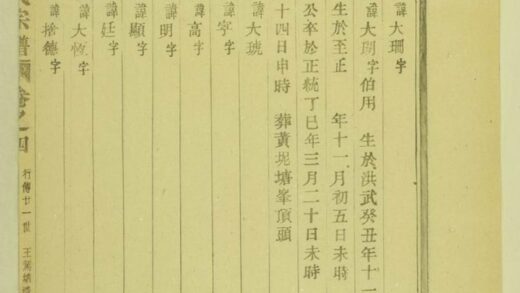 諱大珊字
諱大字伯用 生於洪武癸丑年十一
生於至正 年十一月初五日未時
公卒於正統丁巳年三月二十日未時
十四日申時 葬黃坭塘峯頂頭
諱大琥
諱字
諱高字
諱明字
諱顯字
諱廷字
諱大恆字
諱捨德字
宗譜 卷之四 行傳廿一世 王